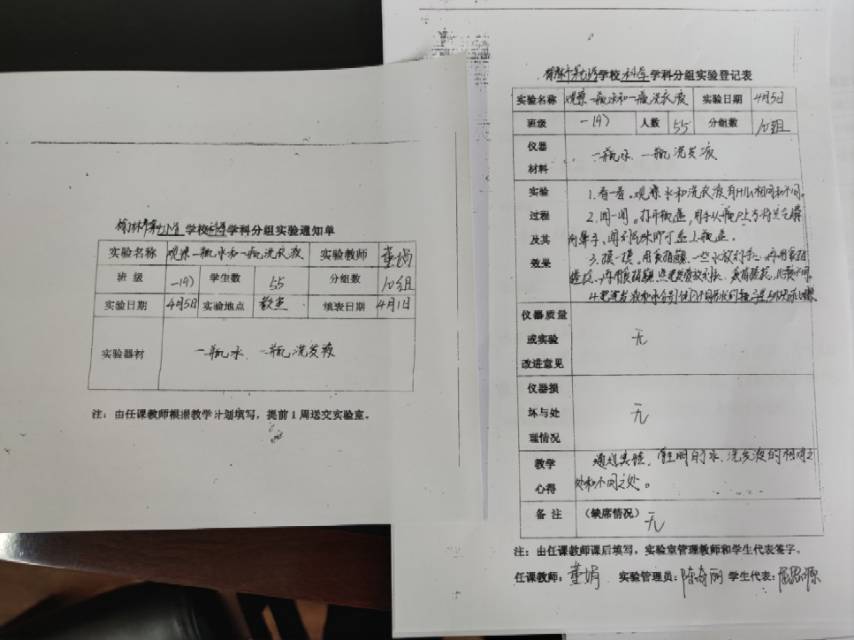 学校科学学科分组实验通知单
实验名称 观察一瓶水和一瓶洗发液 实验教师 董娟
班 级 一(9) 学生数 55 分组数 10组
实验日期 4月5日 实验地点 教室 填表日期 4月1日
实验器材 一瓶水、一瓶洗发液
注：由任课教师根据教学计划填写，提前1周送交实验室。
学校科学学科分组实验登记表
实验名称 观察一瓶水和一瓶洗发液 实验日期 4月5日
班级 一(9) 人数 55 分组数 10组
仪器
材料
一瓶水、一瓶洗发液
实验
过程
及其
效果
1.看一看。观察水和洗发液有什么相同和不同。
2.闻一闻。打开瓶盖，用手从瓶口上方将气味
向鼻子，闻到气味即可盖上瓶盖。
3.摸一摸。用食指蘸一些水
仪器质量
或实验
改进意见
无
仪器损
坏与处
理情况
无
教学
心得
通过实验，水、洗发液的相同之
处和不同之处。
备 注 （缺席情况） 无
注：由任课教师课后填写，实验室管理教师和学生代表签字。
任课教师：董娟 实验管理员： 学生代表：